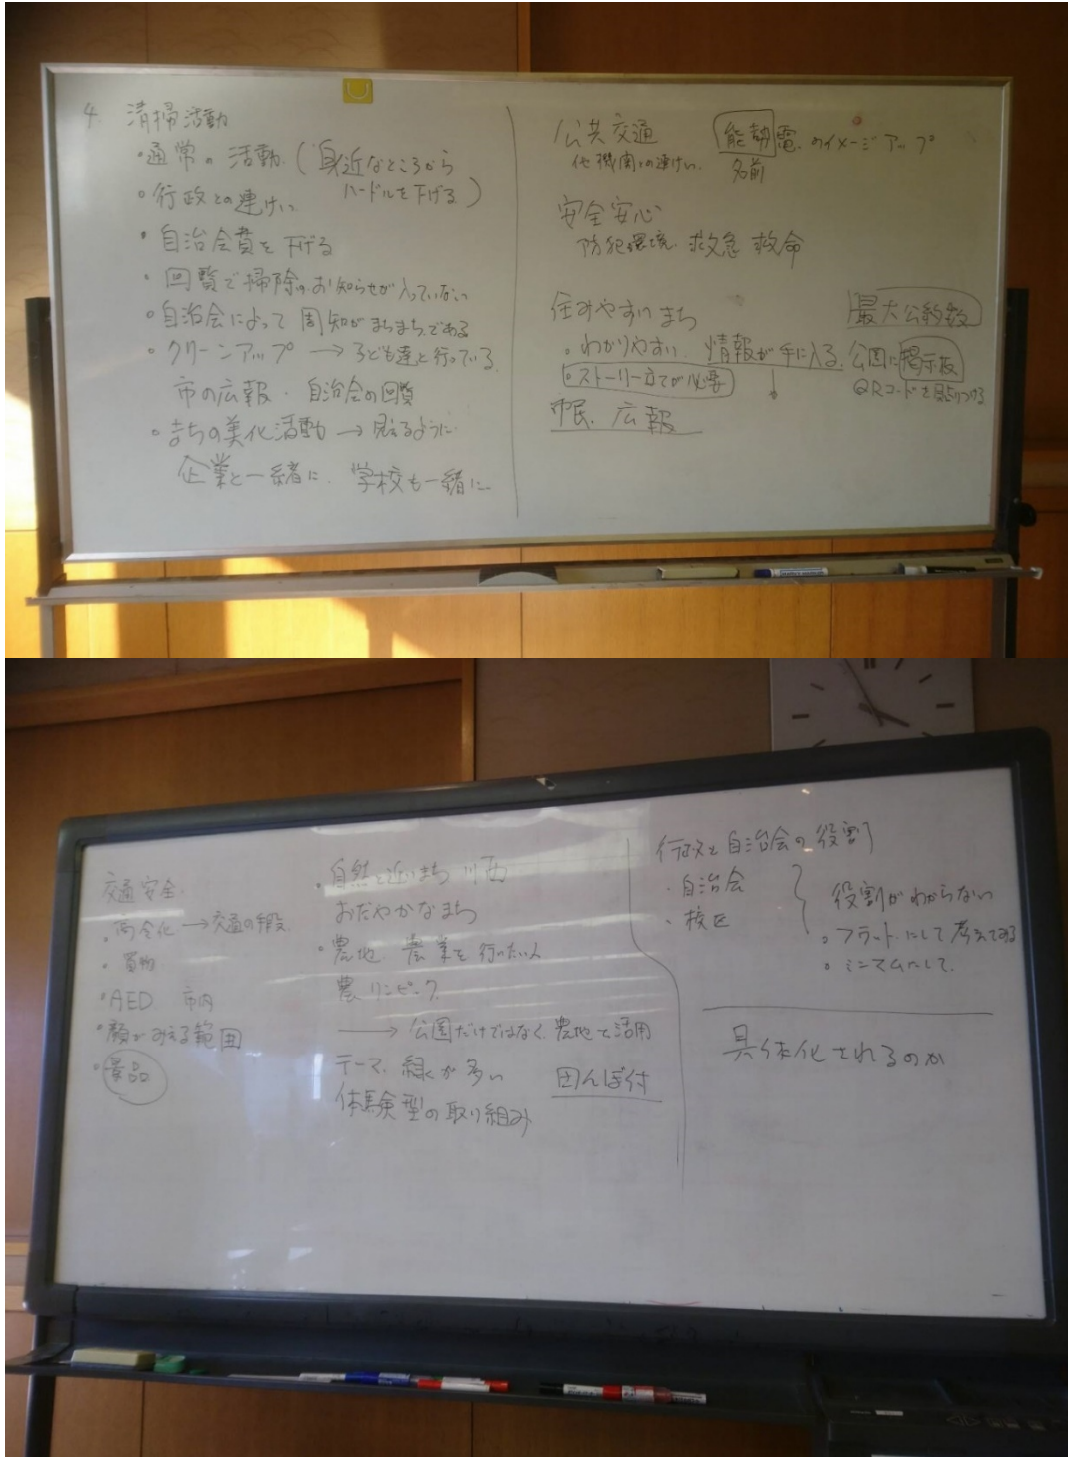 4. 清掃活動
・通常の活動 (身近なところから
ハードルを下げる)
・行政との連けい
・自治会費を下げる
・回覧で掃除のお知らせが入っていない
・自治会によって周知がまちまちである
・クリーンアップ → 子ども達と行っている
市の広報・自治会の回覧
・まちの美化活動 → 見えるように
企業と一緒に、学校も一緒に
公共交通
他機関との連けい
能勢電のイメージアップ
名前
安全安心
防犯環境 救急 救命
住みやすいまち
・わかりやすい 情報が手に入る
・ストーリー立てが必要
市民、広報
最大公約数
公園に掲示板
QRコードを貼りつける
交通安全
・高令化 → 交通の手段
・買物
・AED 市内
・顔がみえる範囲
・景品
・自然と近いまち 川西
おだやかなまち
・農地 農業を行いたい人
農リンピック
→ 公園だけではなく、農地を活用
テーマ、緑が多い
田んぼ付
体験型の取り組み
行政と自治会の役割
・自治会
・校区
役割がわからない
・フラットにして考えてみる
・ミニマムにして
具体化されるのか